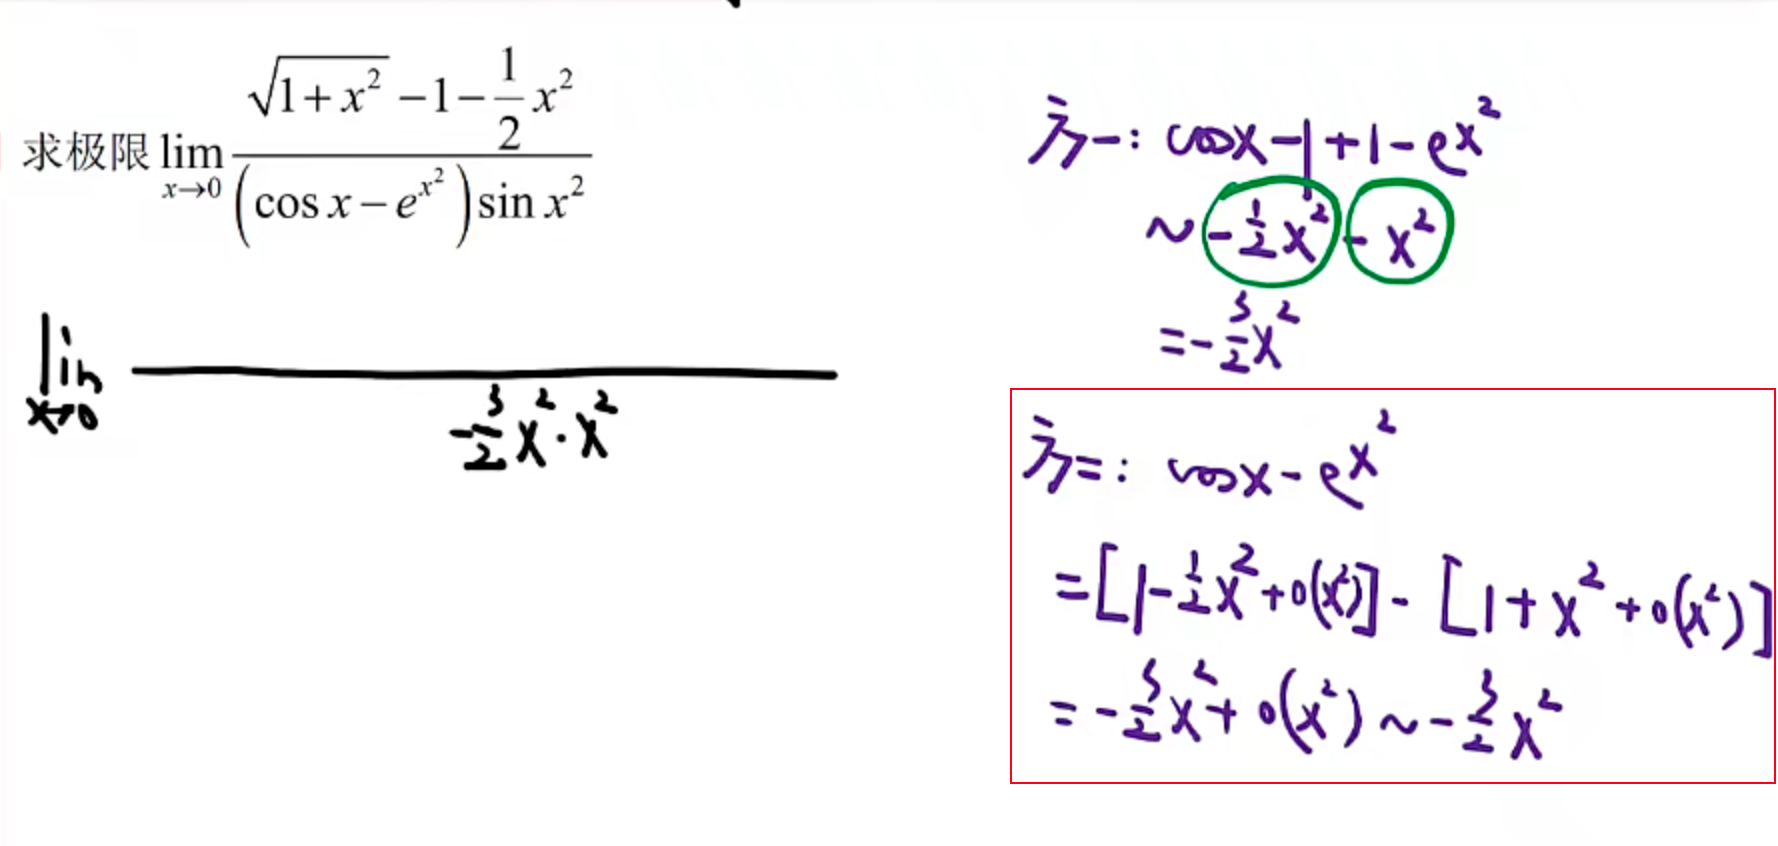 求极限 lim x→0 (√(1+x²) −1− 1/2 x²) / ((cos x − e^(x²)) sin x²)
lim x→0 ———
-3/2 x² · x²
方一: cosx-1+1-e^(x²)
~ -1/2 x² - x²
= -3/2 x²
方二: cosx - e^(x²)
= [1-1/2 x²+o(x²)] - [1+x²+o(x²)]
= -3/2 x² + o(x²) ~ -3/2 x²